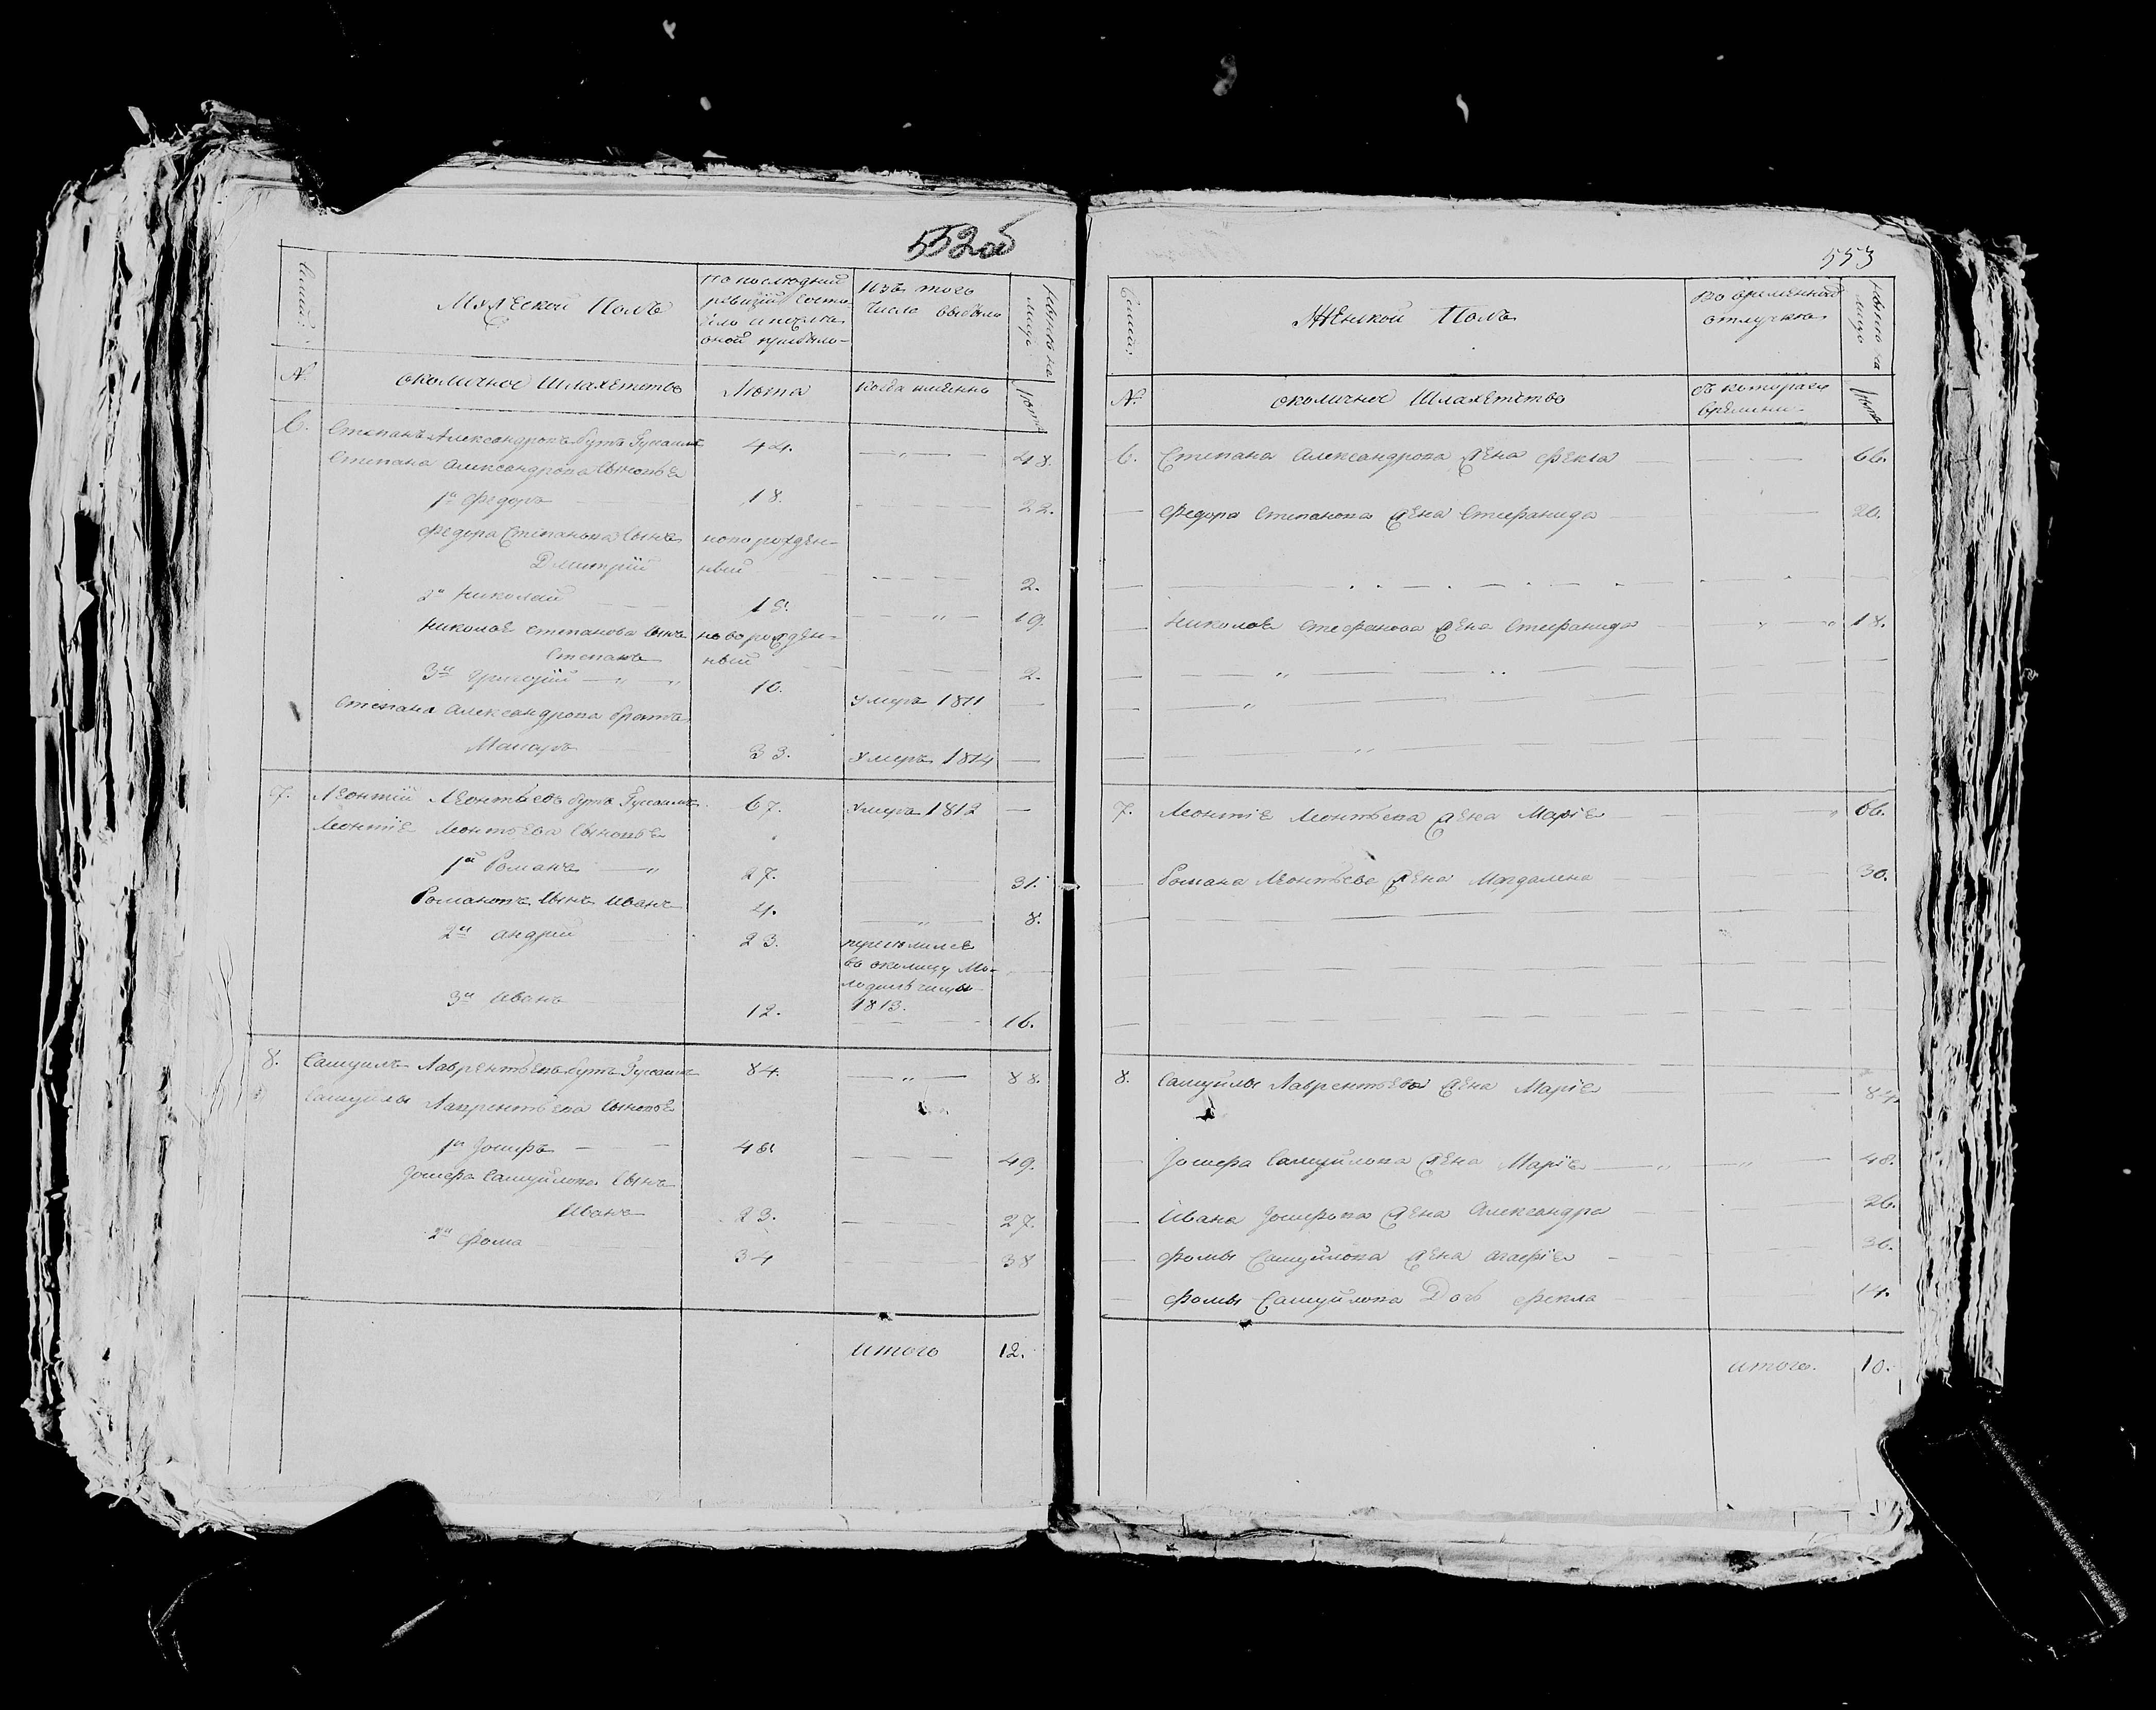 552об
Мужеской Полъ
по последней
ревизiи состо
яло и после
оной прибыло
Изъ того
числа выбыло
ныне на
лицо
N.
околичное Шляхетство
Лета
когда именно
лета
6. Степанъ Александровъ бутъ Гусаимъ 44. 48.
Степана Александрова сыновья
1й Федоръ 18. 22.
Федора Степанова сынъ новорожден-
Дмитрiй ный 2.
2й Николай 15. 19.
Николая Степанова сынъ новорожден-
Степанъ ный 2.
3й Григорiй 10. умеръ 1811
Степана Александрова братъ
Макаръ 33. умеръ 1814
7. Леонтiй Леонтьевъ бутъ Гусаимъ 67. умеръ 1812
Леонтiя Леонтьева сыновья
1й Романъ 27. 31.
Романовъ сынъ Иванъ 4. 8.
2й Андрей 23. переселился
въ околицу Мо-
1813.
3й Иванъ 12. 16.
8. Самуилъ Лаврентьевъ бутъ Гусаимъ 84. 88.
Самуилы Лаврентьева сыновья
1й Iосифъ 49.
Iосифа Самуйлова сынъ
Иванъ 23. 27.
2й Фома 34 38
итого 12.
553
Женской Полъ
Во временной
отлучке
ныне на
лицо
N.
околичное Шляхетство
съ котораго
времени
лета
6. Степана Александрова жена Фекла 66.
Федора Степанова жена Стефанида 20.
Николая Стефанова жена Стефанида 18.
7. Леонтiя Леонтьева жена Марiя 66.
Романа Леонтьева жена Магдалена 30.
8. Самуйлы Лаврентьева жена Марiя 84.
Iосифа Самуйлова жена Марiя 48.
Ивана Iосифова жена Александра 26.
Фомы Самуйлова жена Агафiя 36.
Фомы Самуйлова Дочь Фекла 14.
итого. 10.